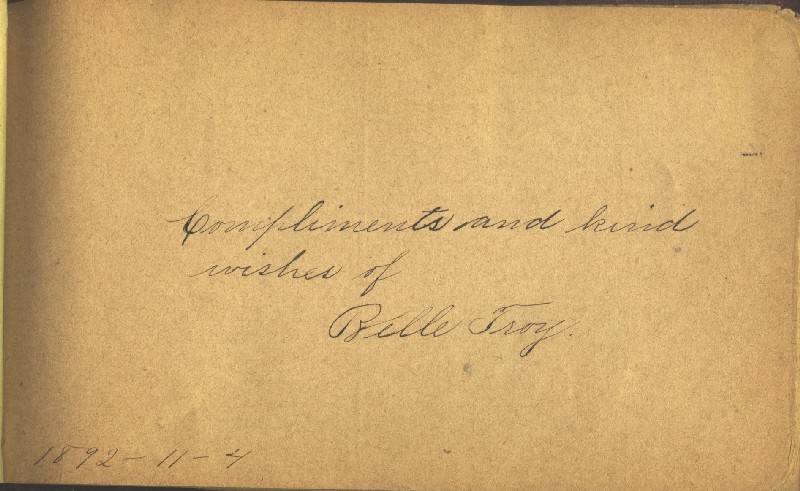 Compliments and kind
wishes of
Belle Troy.
1892-11-4